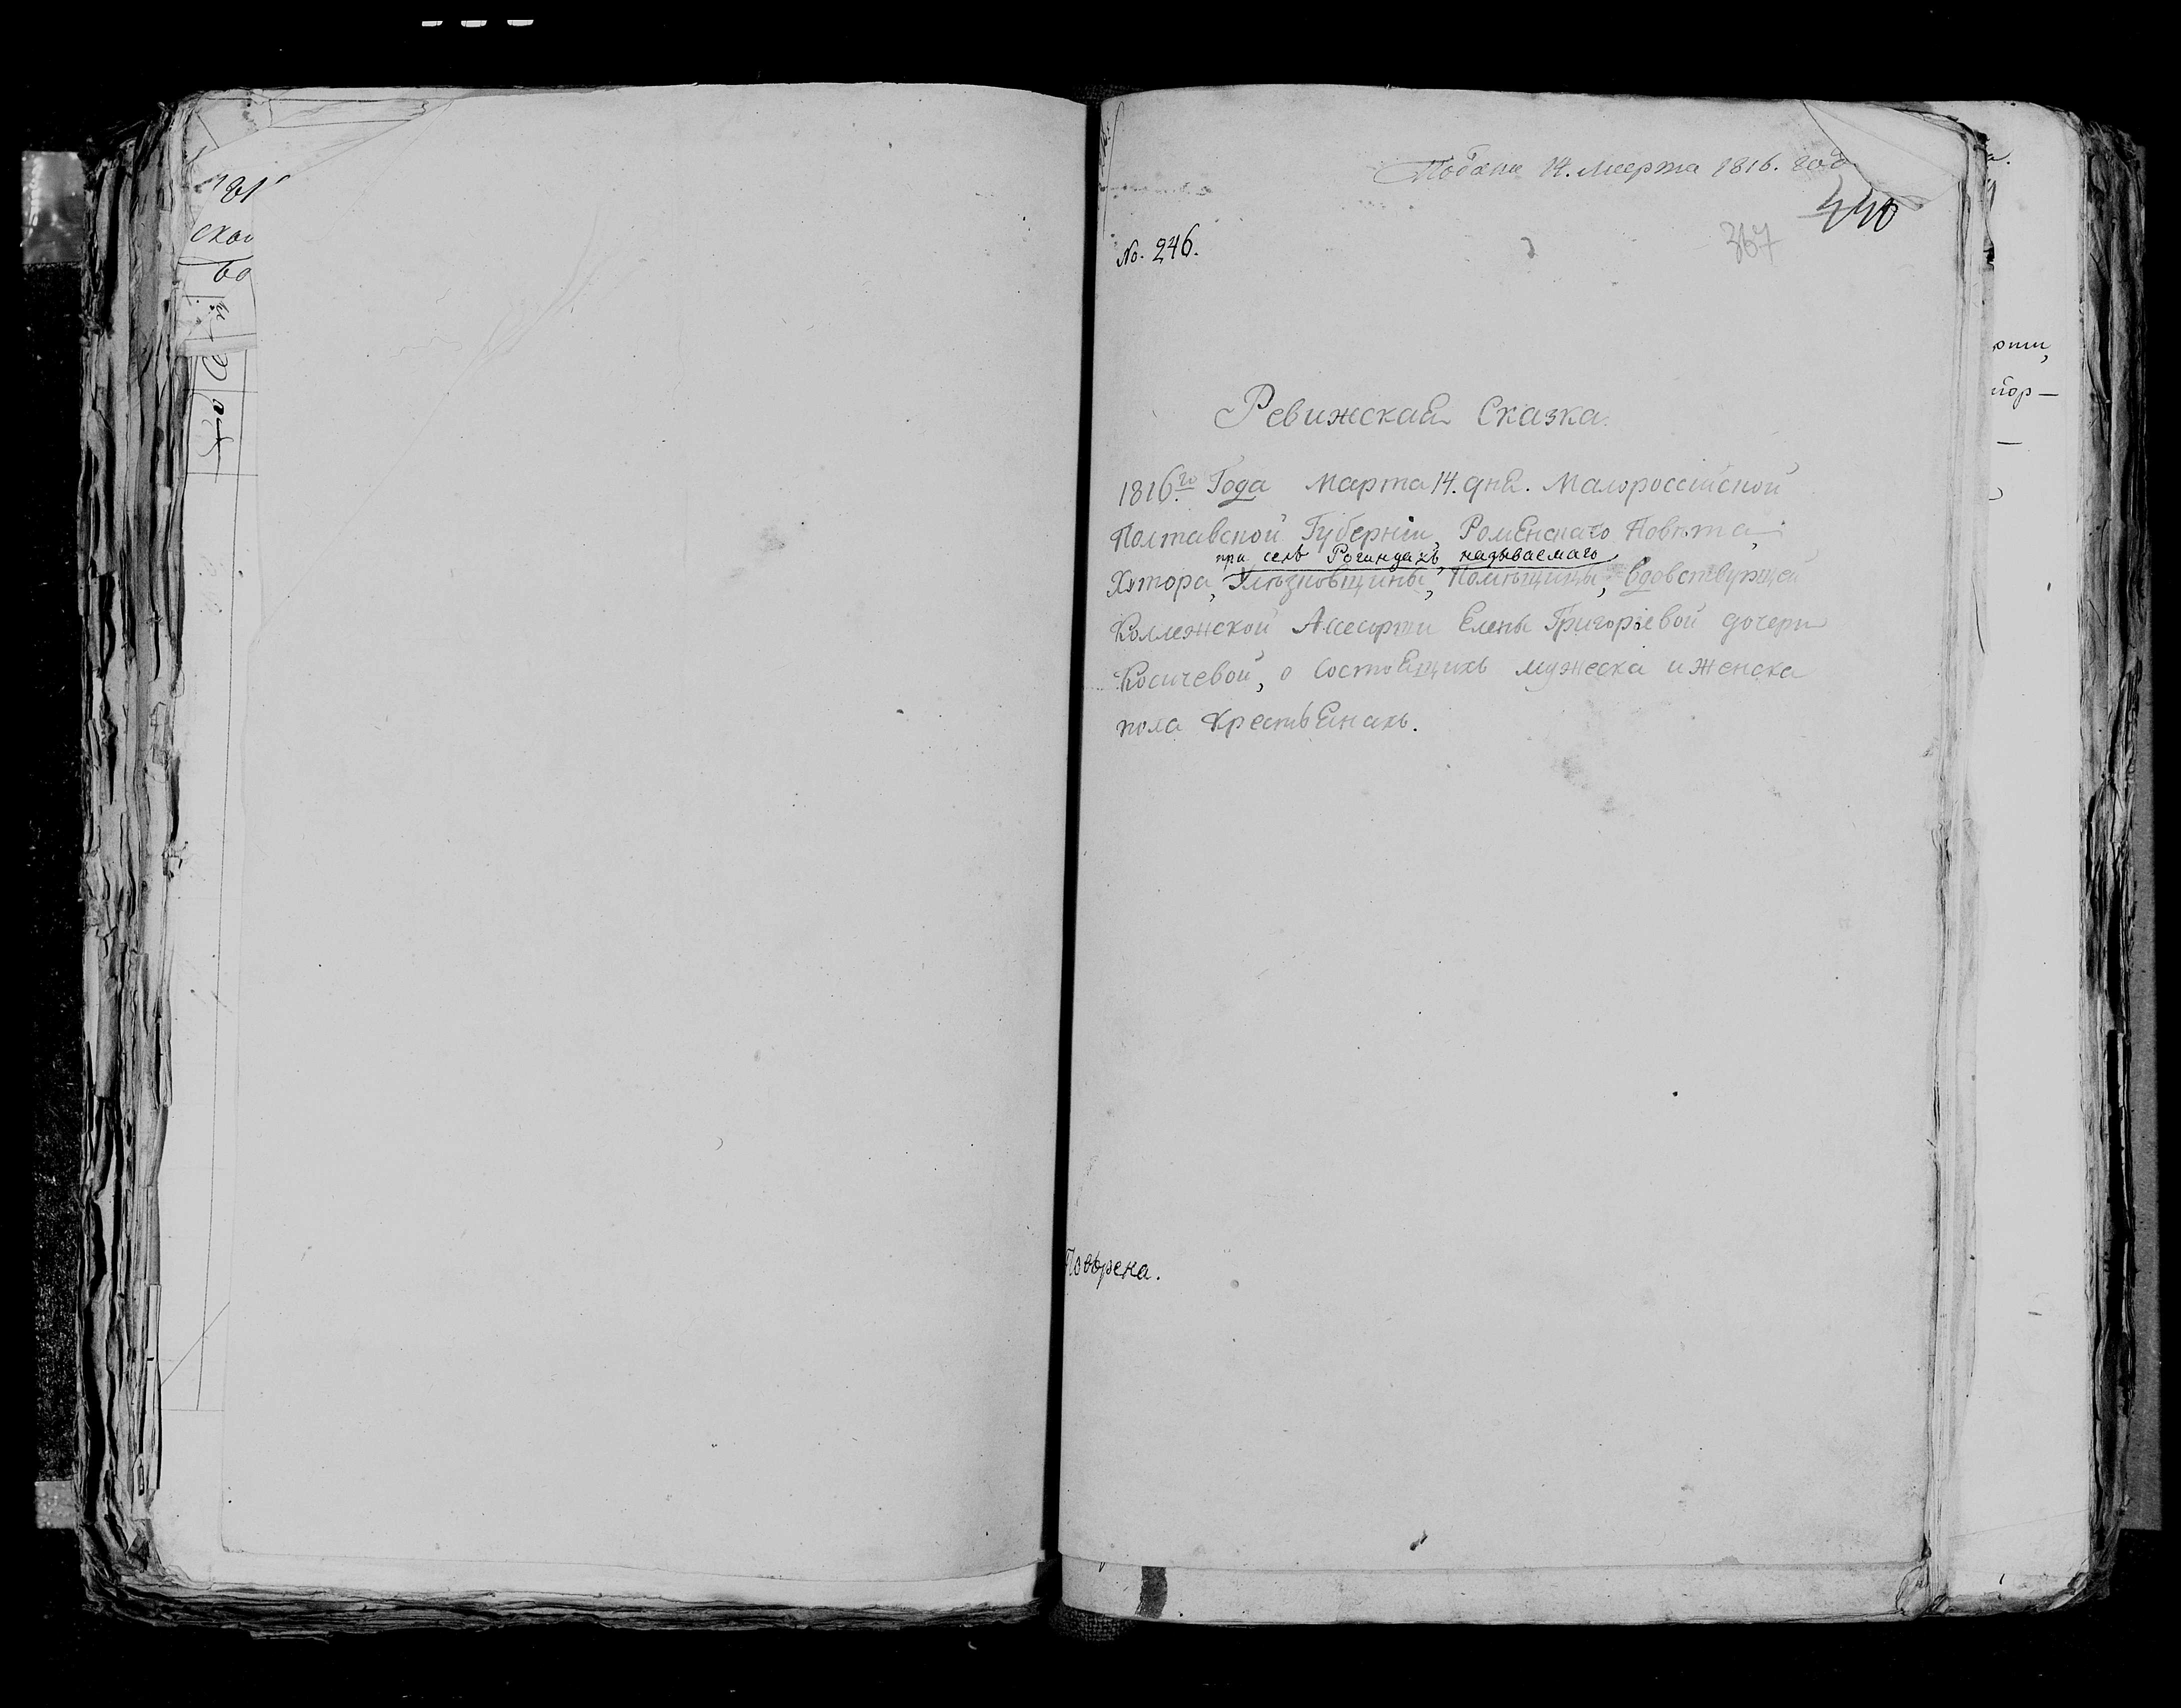 Подана 14. марта 1816. год
440
367
No. 246.
Ревижская Сказка.
1816.го Года Марта 14. дня. Малороссійской
Полтавской Губерніи, Роменскаго Повѣта,
при селѣ Рогинцахъ называемаго
Хутора, Помѣщицы, вдовствующей
Коллежской Асесорши Елены Григоріевой дочери
Косичевой, о Состоящихъ мужеска и женска
пола Крестьянахъ.
Поверена.